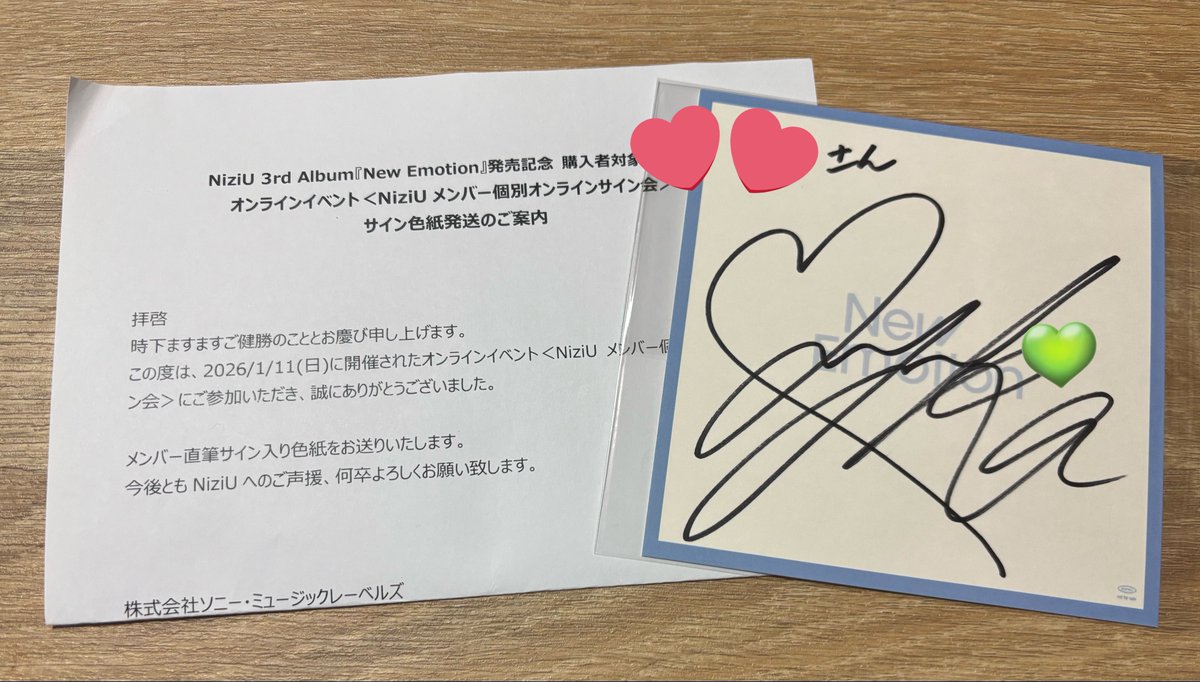 NiziU 3rd Album『New Emotion』発売記念 購入者対象
オンラインイベント＜NiziU メンバー個別オンラインサイン会＞
サイン色紙発送のご案内
拝啓
時下ますますご健勝のこととお慶び申し上げます。
この度は、2026/1/11(日)に開催されたオンラインイベント＜NiziU メンバー個
ン会＞にご参加いただき、誠にありがとうございました。
メンバー直筆サイン入り色紙をお送りいたします。
今後とも NiziU へのご声援、何卒よろしくお願い致します。
株式会社ソニー・ミュージックレーベルズ
さん
New
Emotion